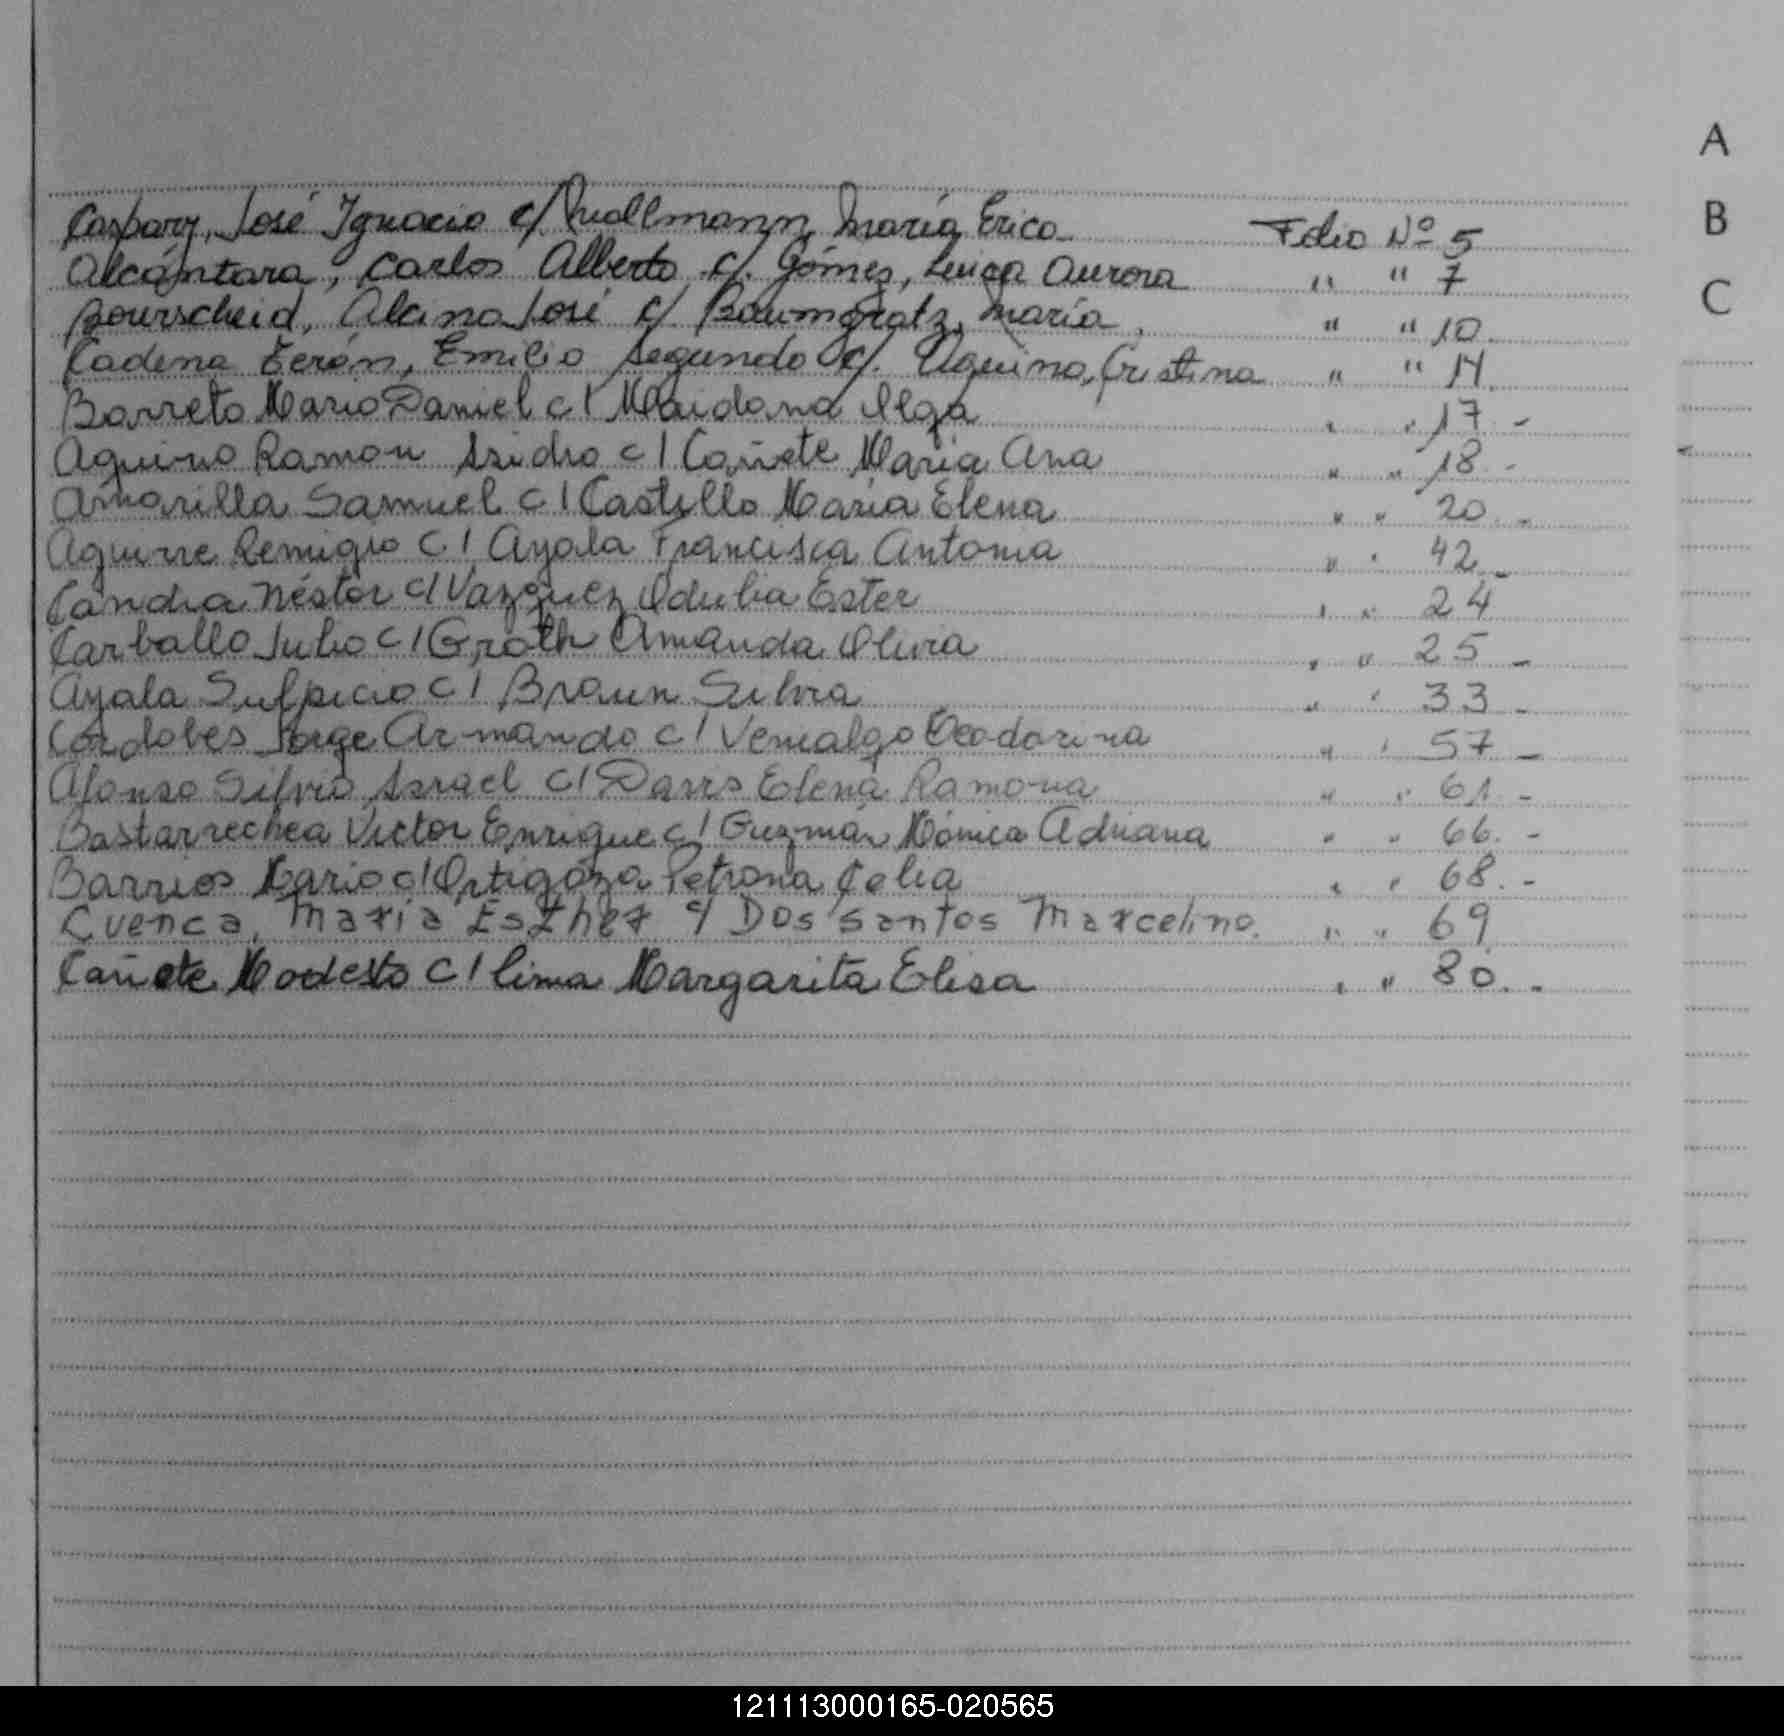 A
B
C
Caspary, José Ignacio c/ Quallmann, María Erica Folio Nº 5
Alcántara, Carlos Alberto c/. Gómes, Luisa Aurora " " 7
Bourscheid, Alcino José c/ Baumgratz, María. " " 10.
Cadena Terán, Emilio Segundo c/. Aquino, Cristina " " 14.
Barreto Mario Daniel c/ Maidana Ilga " " 17.-
Aquino Ramon Isidro c/ Cañete Maria Ana " " 18.-
Amarilla Samuel c/ Castillo Maria Elena " " 20.-
Aguirre Remigio c/ Ayala Francisca Antonia " " 42.-
Candia Néstor c/ Vazquez Odulia Ester " " 24
Carballo Julio c/ Groth Amanda Olivia " " 25.-
Ayala Sulpicio c/ Braun Silvia " " 33.-
Cordobés Jorge Armando c/ Venialgo Teodorina " " 57.-
Afonso Silvio Israel c/ Davis Elena Ramona " " 61.-
Bastarrechea Victor Enrique c/ Guzmán Mónica Adriana " " 66.-
Barrios Mario c/ Ortigoza Petrona Celia " " 68.-
Cuenca, Maria Esther c/ Dos Santos Marcelino. " " 69
Cañete Modesto c/ Lima Margarita Elisa " " 80.-
121113000165-020565